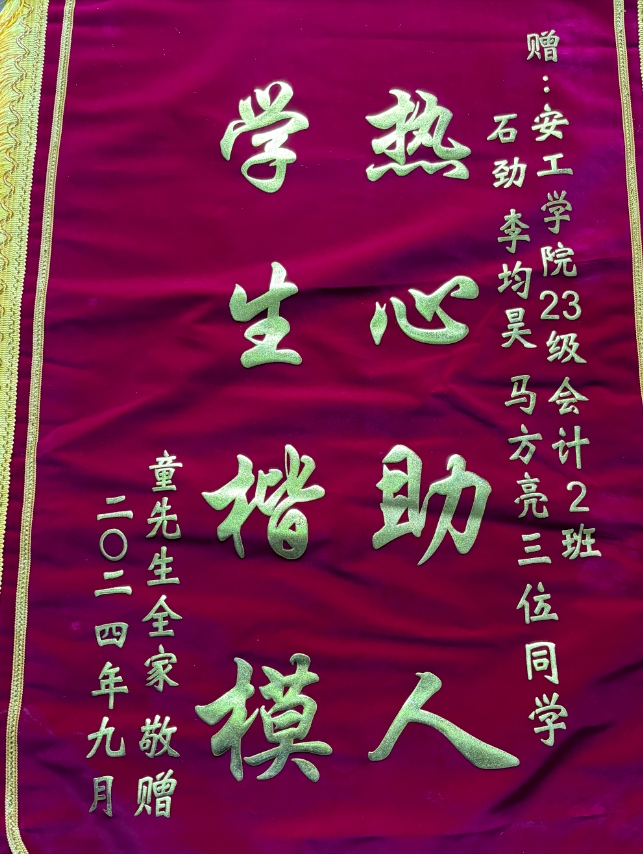 赠：安工学院23级会计2班
石劲 李均昊 马方亮三位同学
热心助人
学生楷模
童先生全家 敬赠
二〇二四年九月